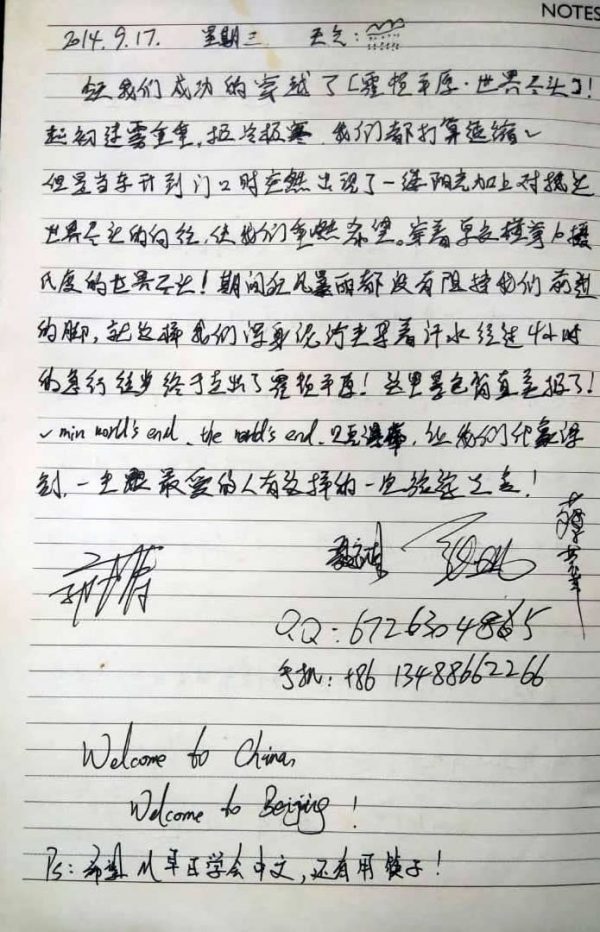 NOTES
2014.9.17. 星期三 天气:
我们成功的穿越了【霍顿平原·世界尽头】!
起初迷雾重重, 极冷极寒, 我们都打算退缩~
但是当车开到门口时突然出现了一缕阳光加上对抵达
世界尽头的向往, 使我们重燃希望。穿着单衣
氏度的世界尽头! 期间狂风暴雨都没有阻挡我们前进
的脚, 就这样我们浑身泥泞夹杂着汗水经过4小时
的急行徒步终于走出了霍顿平原! 这里景色简直美极了!
~ mini world's end、the world's end、 让我们
到, 一定跟最爱的人有这样的一次
QQ: 672630486
手机: +86 13488662266
Welcome to China,
Welcome to Beijing!
Ps: 希望 M 早日学会中文, 还有用筷子!